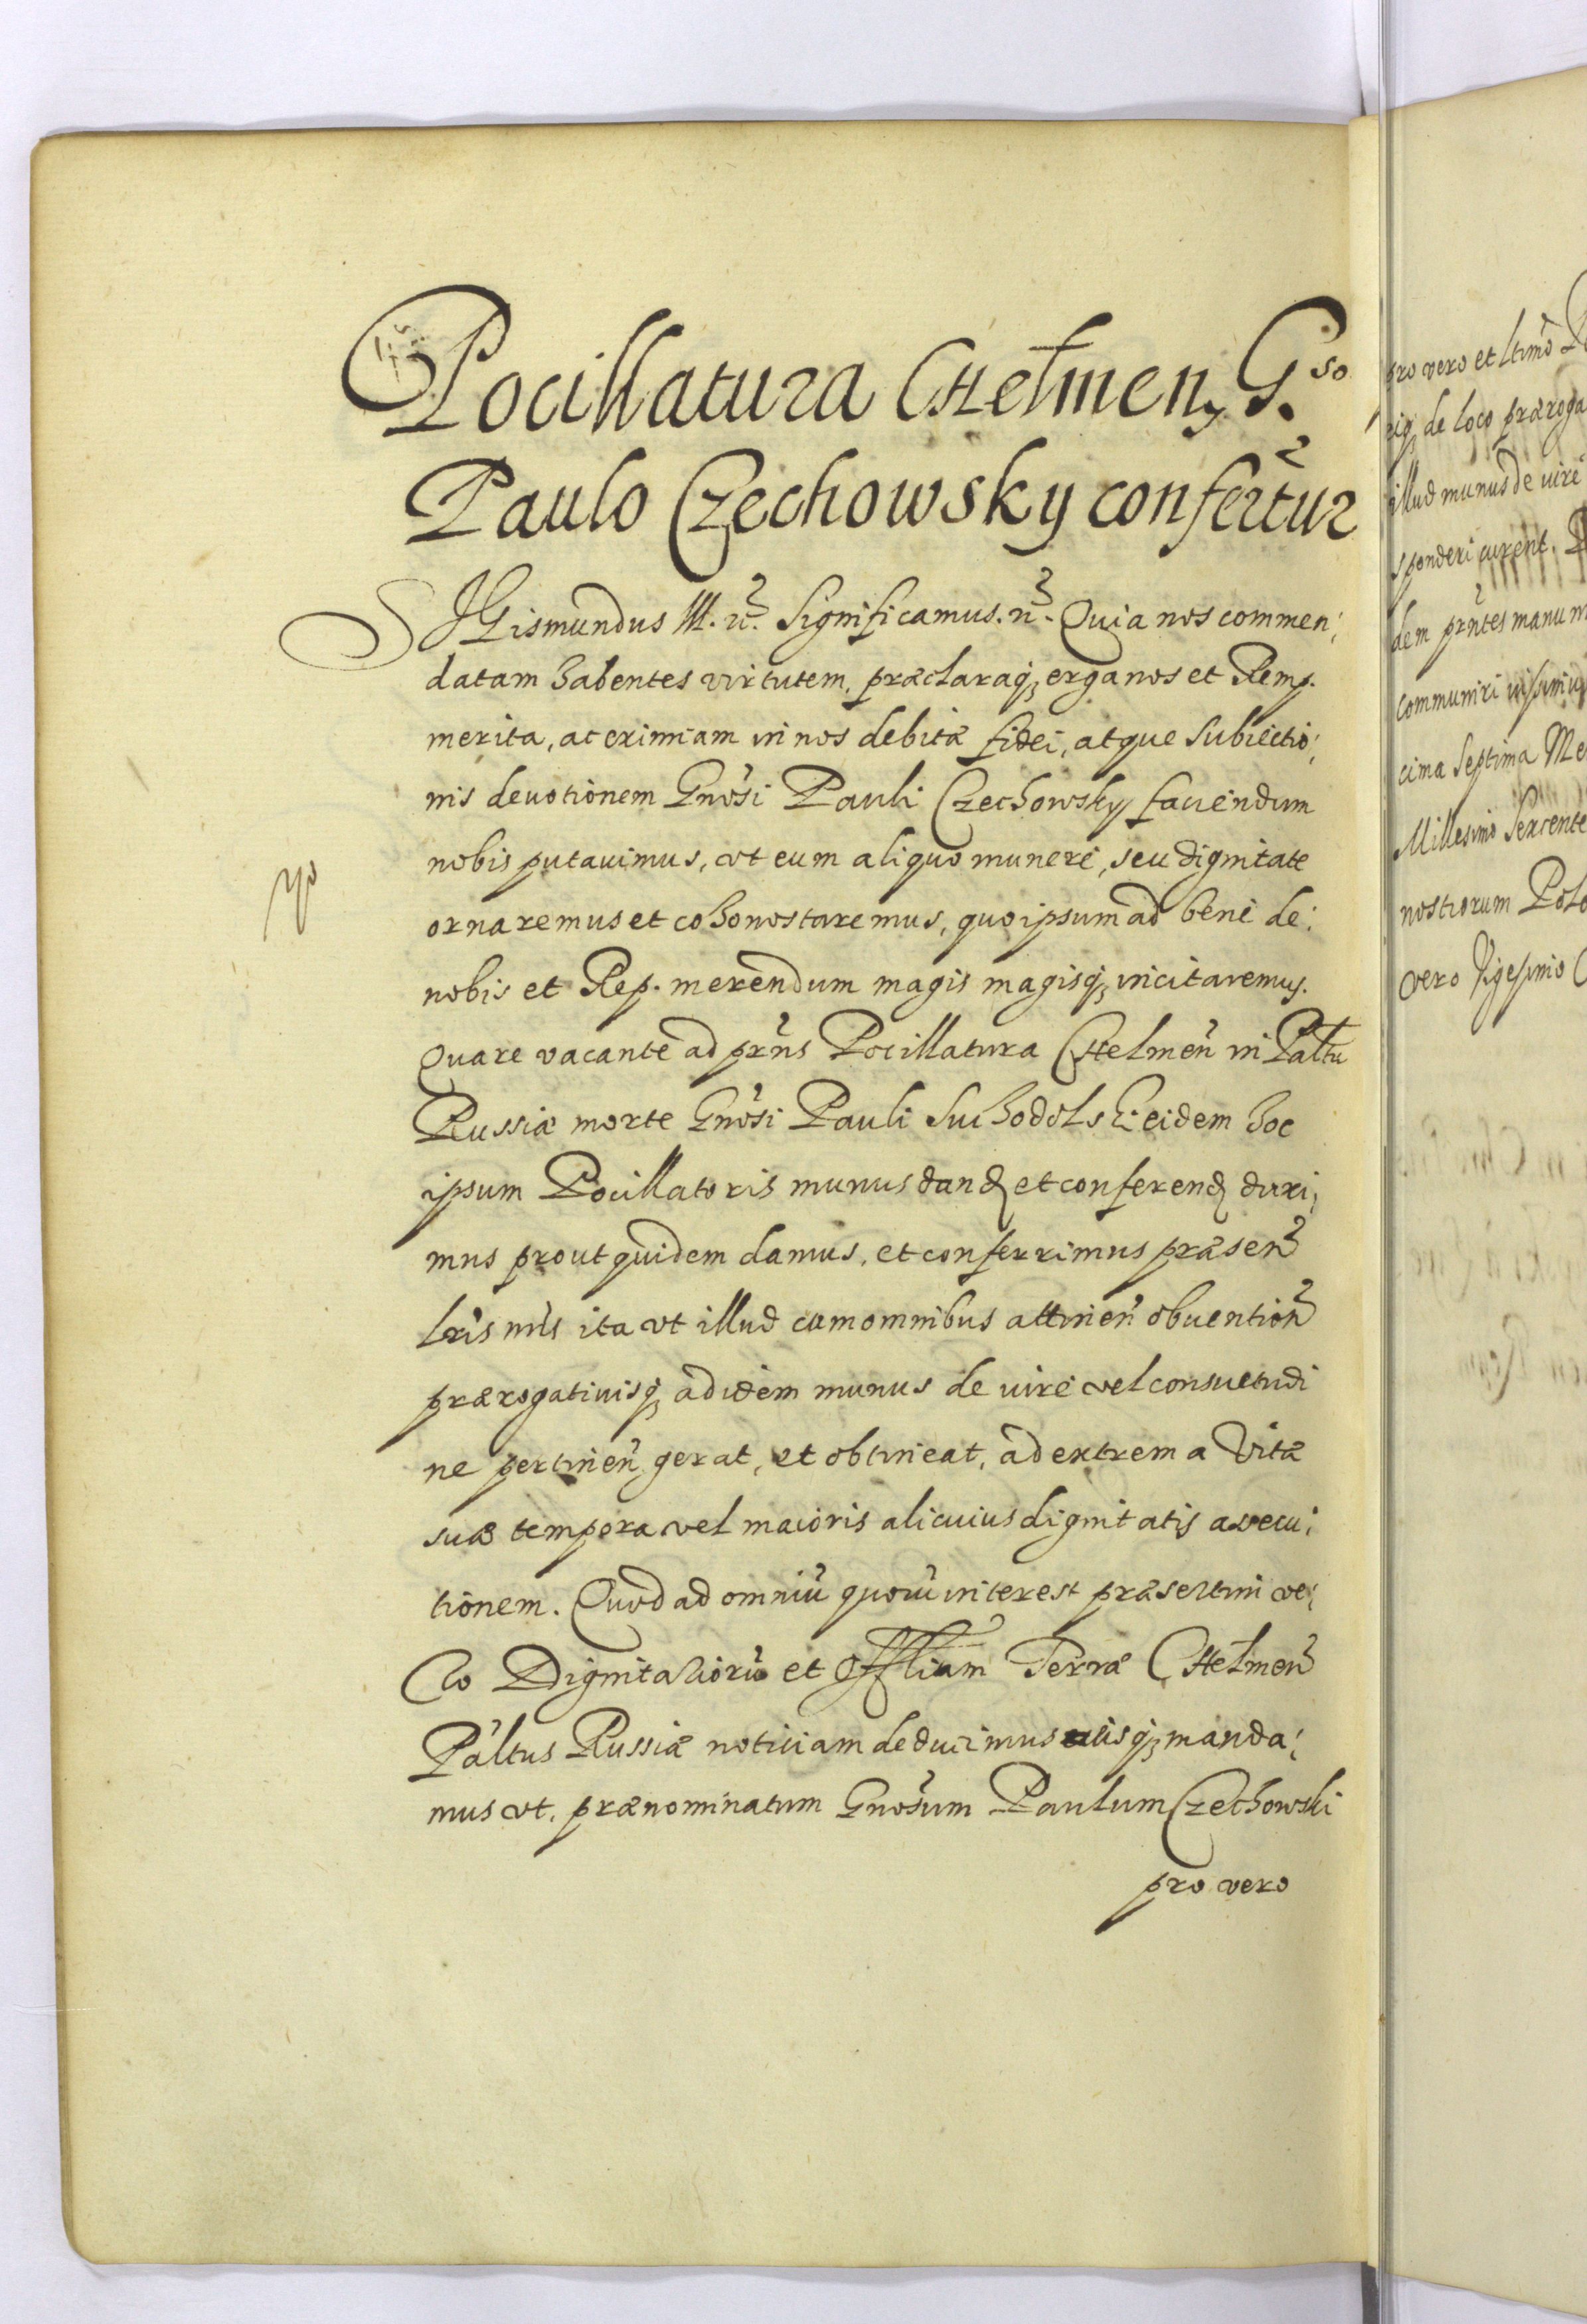 Pocillatura Chelmen, G.so
Paulo Czechowsky confertur
SIGismundus III. etc. Significamus. etc. Quia nos commen:
datam habentes virtutem, præclaraq; erga nos et Remp.
merita, ac eximiam in nos debitæ fidei, atque Subiectio:
nis deuotionem Gnosi Pauli Czechowsky fauendum
nobis putauimus, vt eum aliquo munere, seu dignitate
ornaremus et cohonostaremus, quo ipsum ad bene de:
nobis et Rep. merendum magis magisq; incitaremus.
Quare vacante ad prns Pocillatura Chelmen in Paltu
Russiæ morte Gnosi Pauli Suchodolski eidem hoc
ipsum Pocillatoris munus dand et conferend duxi:
mus prout quidem damus, et conferrimus præsen
lris nris ita vt illud cum omnibus attinen obuention
prærogatiuisq; ad idem munus de iure vel consuetudi
ne pertinen gerat, et obtineat, ad extrema Vitæ
suæ tempora vel maioris alicuius dignitatis assecu:
tionem. Quod ad omniu quoru interest præsertim ve:
ro Dignitarioru et Offlium Terræ Chelmen
Paltus Russiæ noticiam deducimus eisq; manda:
mus vt. prænominatum Gnosum Paulum Czechowski
pro vero
pro vero et ltimo
eiq; de loco præroga
illud munus de iure
sponderi curent.
dem prntes manu n
communiri iussimus
cima Septima Me
Millesimo Sexcente
nostrorum Polo
vero Vigesimo